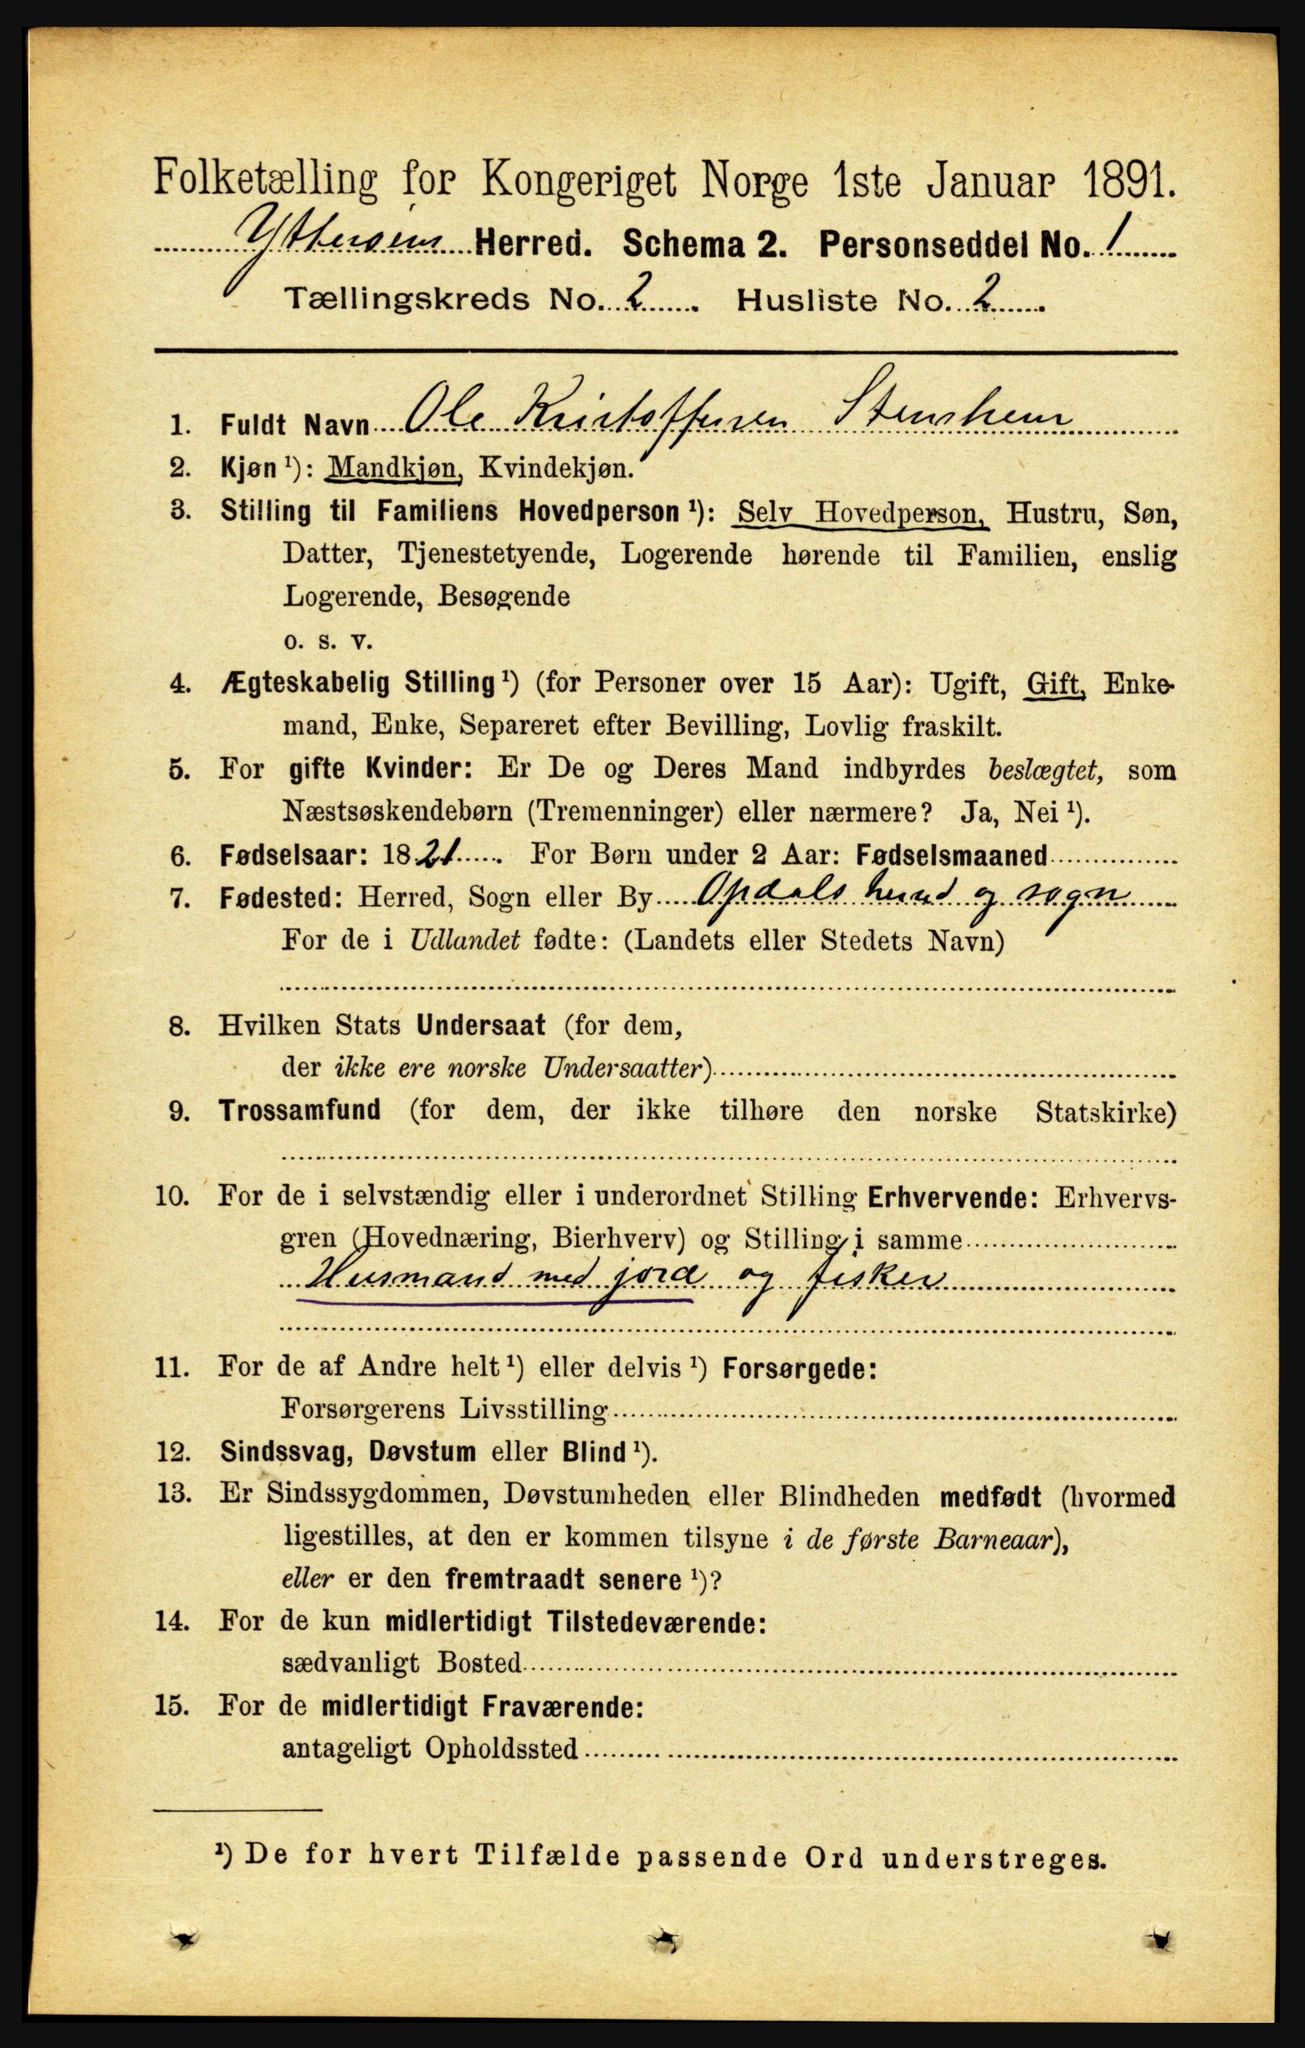 Folketælling for Kongeriget Norge 1ste Januar 1891.
Ytterøens Herred. Schema 2. Personseddel No. 1
Tællingskreds No. 2. Husliste No. 2.
1. Fuldt Navn Ole Kristoffersen Stenshem
2. Kjøn ¹): Mandkjøn, Kvindekjøn.
3. Stilling til Familiens Hovedperson ¹): Selv Hovedperson, Hustru, Søn,
Datter, Tjenestetyende, Logerende hørende til Familien, enslig
Logerende, Besøgende
o. s. v.
4. Ægteskabelig Stilling ¹) (for Personer over 15 Aar): Ugift, Gift, Enke-
mand, Enke, Separeret efter Bevilling, Lovlig fraskilt.
5. For gifte Kvinder: Er De og Deres Mand indbyrdes beslægtet, som
Næstsøskendebørn (Tremenninger) eller nærmere? Ja, Nei ¹).
6. Fødselsaar: 1821. For Børn under 2 Aar: Fødselsmaaned
7. Fødested: Herred, Sogn eller By Opdals herred og sogn
For de i Udlandet fødte: (Landets eller Stedets Navn)
8. Hvilken Stats Undersaat (for dem,
der ikke ere norske Undersaatter)
9. Trossamfund (for dem, der ikke tilhøre den norske Statskirke)
10. For de i selvstændig eller i underordnet Stilling Erhvervende: Erhvervs-
gren (Hovednæring, Bierhverv) og Stilling i samme
Husmand med jord og fisker
11. For de af Andre helt ¹) eller delvis ¹) Forsørgede:
Forsørgerens Livsstilling
12. Sindssvag, Døvstum eller Blind ¹).
13. Er Sindssygdommen, Døvstumheden eller Blindheden medfødt (hvormed
ligestilles, at den er kommen tilsyne i de første Barneaar),
eller er den fremtraadt senere ¹)?
14. For de kun midlertidigt Tilstedeværende:
sædvanligt Bosted
15. For de midlertidigt Fraværende:
antageligt Opholdssted
¹) De for hvert Tilfælde passende Ord understreges.